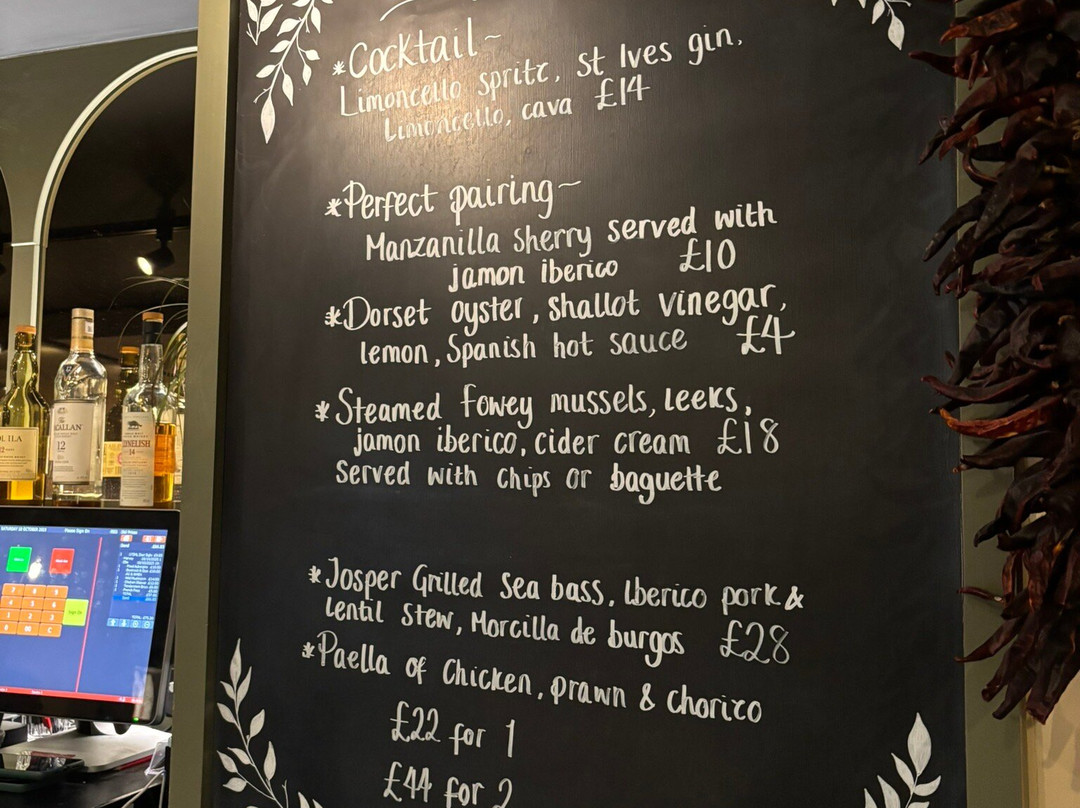 *Cocktail~
Limoncello spritz, St Ives gin,
Limoncello, cava £14
*Perfect pairing~
Manzanilla sherry served with
jamon iberico £10
*Dorset oyster, shallot vinegar,
lemon, Spanish hot sauce £4
*Steamed fowey mussels, leeks,
jamon iberico, cider cream £18
Served with chips or baguette
*Josper Grilled Sea bass, Iberico pork &
lentil stew, Morcilla de burgos £28
*Paella of Chicken, prawn & chorizo
£22 for 1
£44 for 2
OL ILA
ACALLAN
12
14